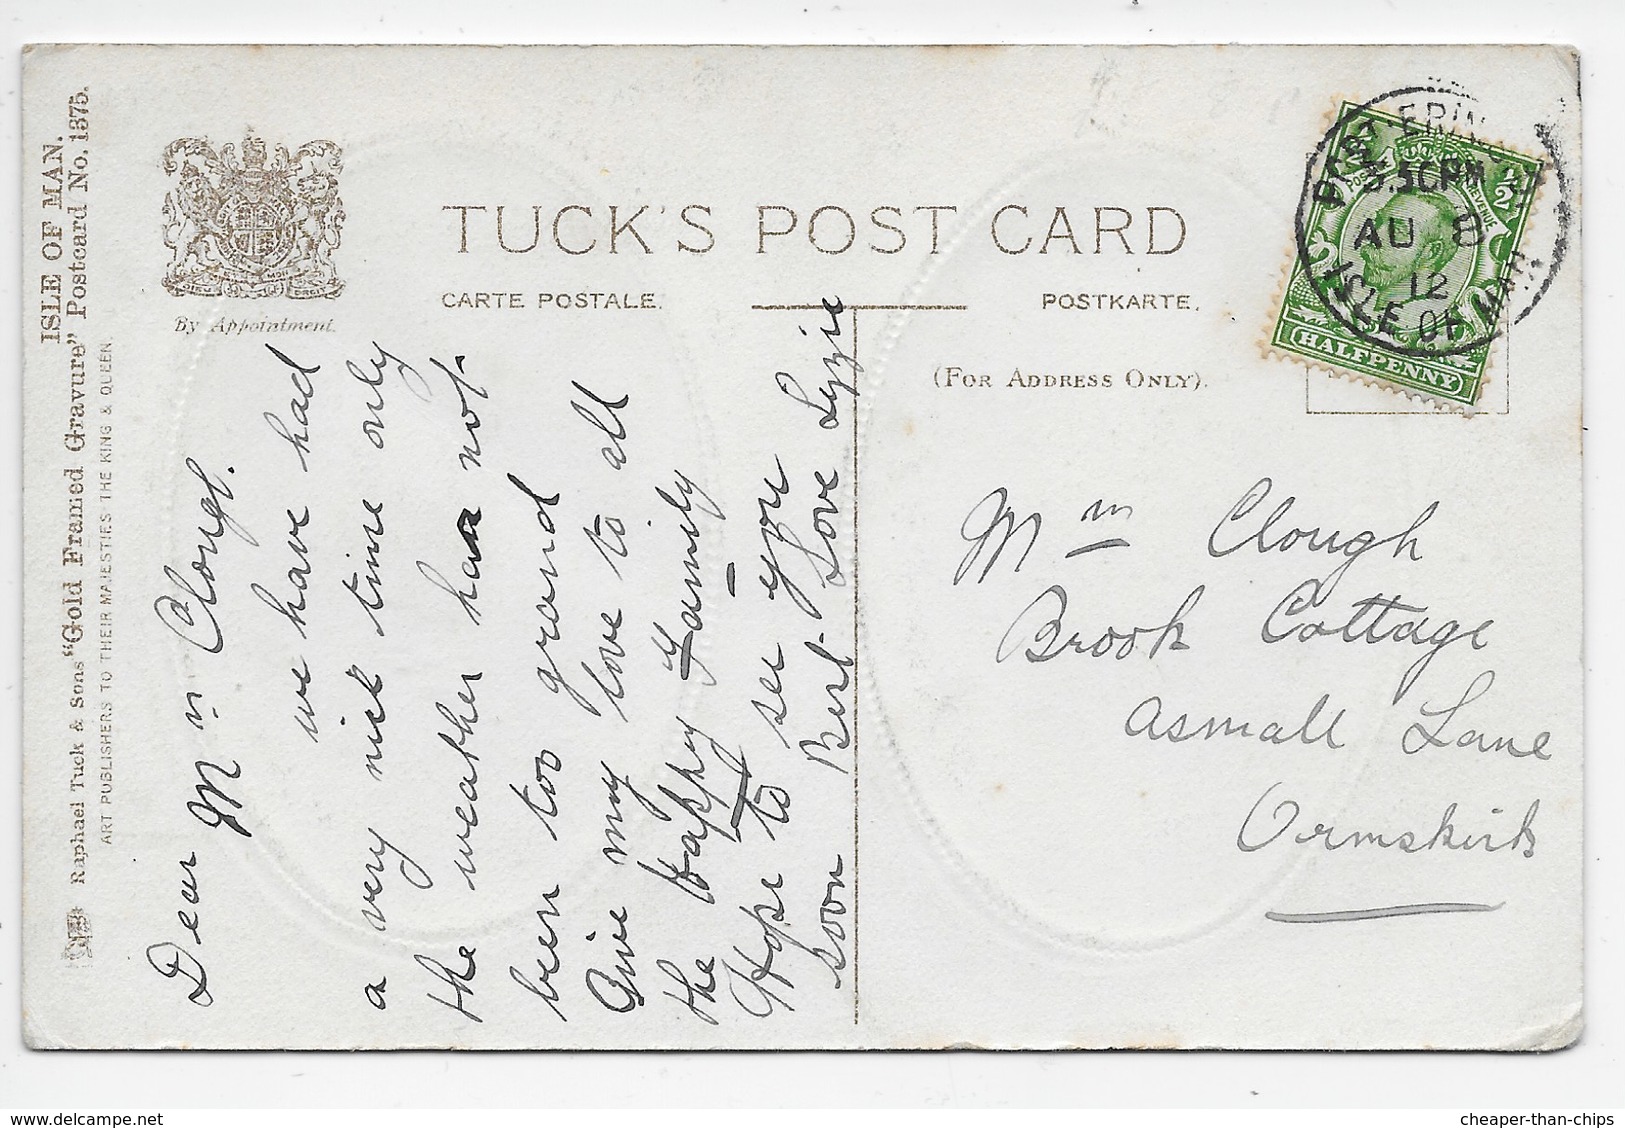 ISLE OF MAN.
Raphael Tuck & Sons "Gold Framed Gravure" Postcard No. 1375.
ART PUBLISHERS TO THEIR MAJESTIES THE KING & QUEEN.
By Appointment.
TUCK'S POST CARD
CARTE POSTALE.
POSTKARTE.
(FOR ADDRESS ONLY).
PORT ERIN
3.30PM
AU 8
12
ISLE OF MAN
POSTAGE
REVENUE
½
½
HALFPENNY
Dear Mrs Clough.
we have had
a very nice time only
the weather has not
been too grand
Give my love to all
the Happy Family
Hope to see you
soon Best Love Lizzie
Mrs Clough
Brook Cottage
Asmall Lane
Ormskirk
cheaper-than-chips
delcampe.net